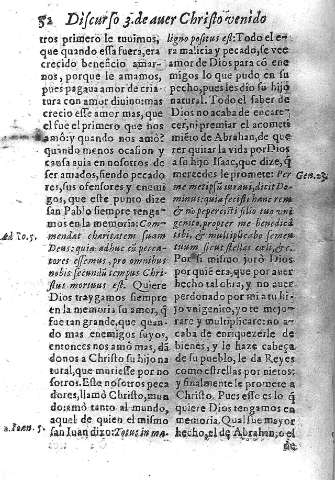 82 Discurso 3. de auer Christo venido
tros primero le tuuimos,
que quando essa fuera, era
crecido beneficio amar-
nos, porque le amamos,
pues pagaua amor de cria-
tura con amor diuino: mas
crecio esse amor mas, que
el fue el primero que nos
amó: y quando nos amó?
quando menos ocasion y
causa auia en nosotros de
ser amados, siendo pecado
res, sus ofensores y enemi
gos, que este punto dize
san Pablo siempre tenga-
Ad Ro. 5. mos en la memoria: Com-
mendat charitatem suam
Deus: quia adhuc cū pecca-
tores essemus, pro omnibus
nobis secundū tempus Chri-
stus mortuus est. Quiere
Dios traygamos siempre
en la memoria su amor, q̃
fue tan grande, que quan-
do mas enemigos suyos,
entonces nos amó mas, dā
donos a Christo su hijo na
tural, que muriesse por no
sotros. Este nosotros peca
dores, llamó Christo, mun
do: amó tanto al mundo,
aquel de quien el mismo
1. Ioan. 5. san Iuan dixo: Totus in ma-
ligno positus est: Todo el e-
ra malicia y pecado, se vee
amor de Dios para cō ene
migos lo que pudo en su
pecho, pues les dio su hijo
natural. Todo el saber de
Dios no acaba de encare-
cer, ni premiar el acometi
miẽto de Abrahan, de que
rer quitar la vida por Dios
a su hijo Isaac, que dize, q̃
mereces le promete: Per Gen. 22.
me metipsū iuraui, dicit Do-
minus: quia fecisti hanc rem
& no pepercisti filio tuo vni
genito, propter me benedicā
tibi, & multiplicabo semen
tuum sicut stellas cœli, &c.
Por si mismo juró Dios
por quié era, que por auer
hecho tal cosa, y no auer
perdonado por mi a tu hi-
jo vnigenito, yo te mejo-
rare y multiplicare: no a-
caba de enriquezerle de
bienes, y le haze cabeça
de su pueblo, le da Reyes
como estrellas por nietos;
y finalmente le promete a
Christo. Pues esse es lo q̃
quiere Dios tengamos en
memoria. Qual fue mayor
hecho, el de Abrahan, o el
de